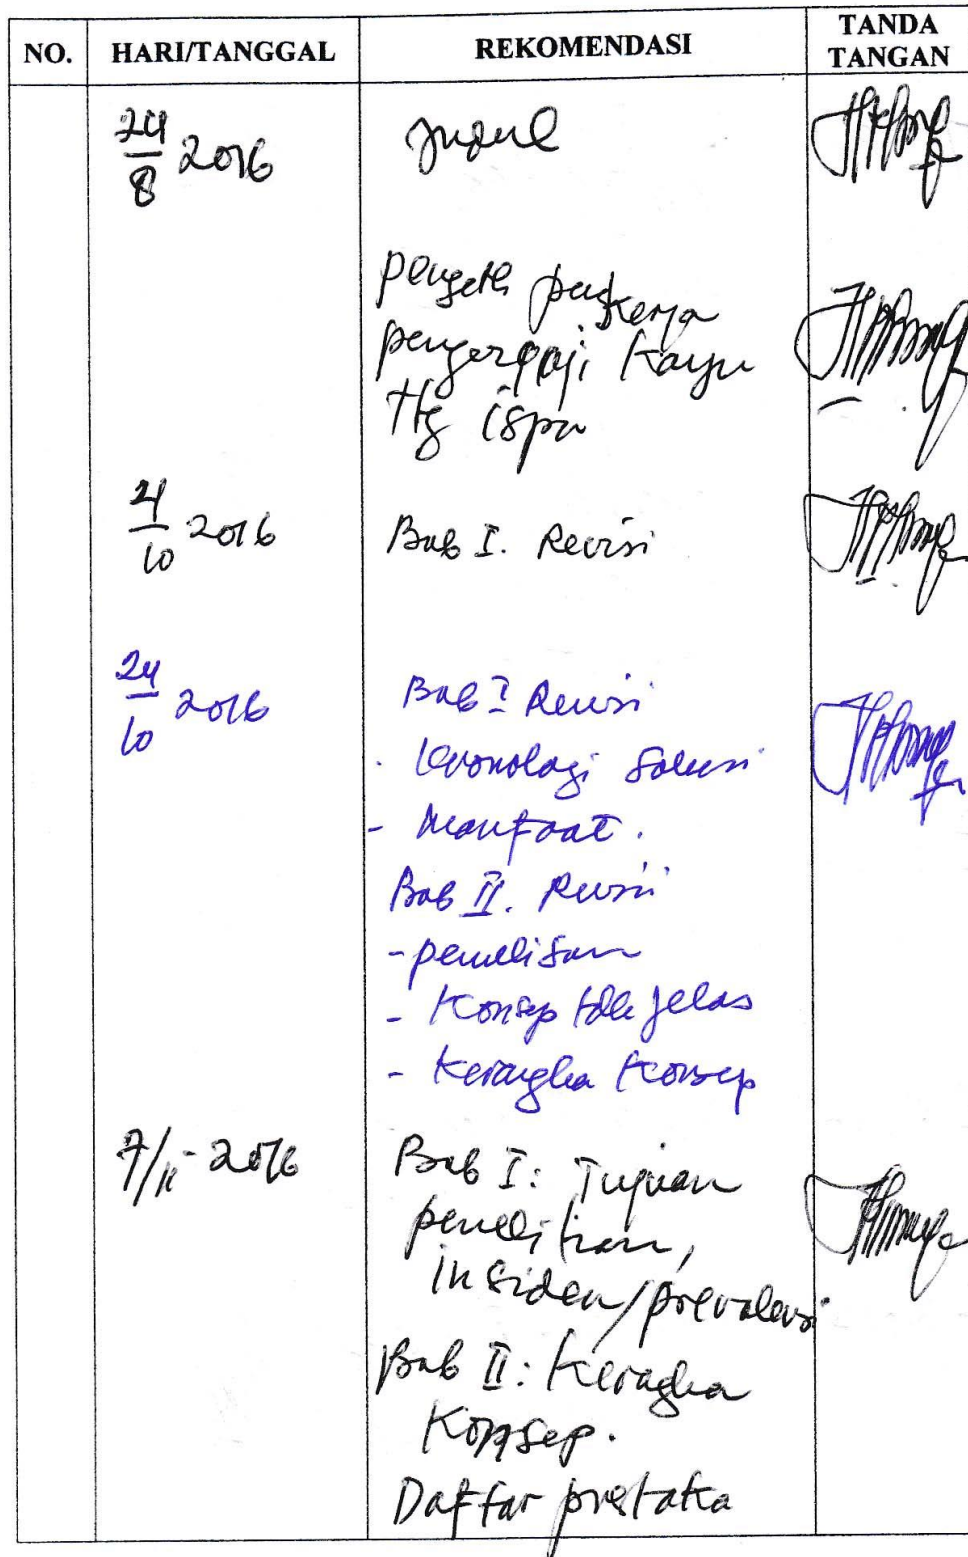 NO. HARI/TANGGAL REKOMENDASI TANDA TANGAN
24/8 2016 Judul
pengeth pekerja
pengergaji Kayu
ttg ispa
4/10 2016 Bab I. Revisi
24/10 2016 Bab I Revisi
- Kronologi Solusi
- Manfaat.
Bab II. Revisi
- penulisan
- Konsep tdk jelas
- Kerangka Konsep
7/11-2016 Bab I: Tujuan
penelitian,
insiden/prevalensi
Bab II: Kerangka
Konsep.
Daftar pustaka